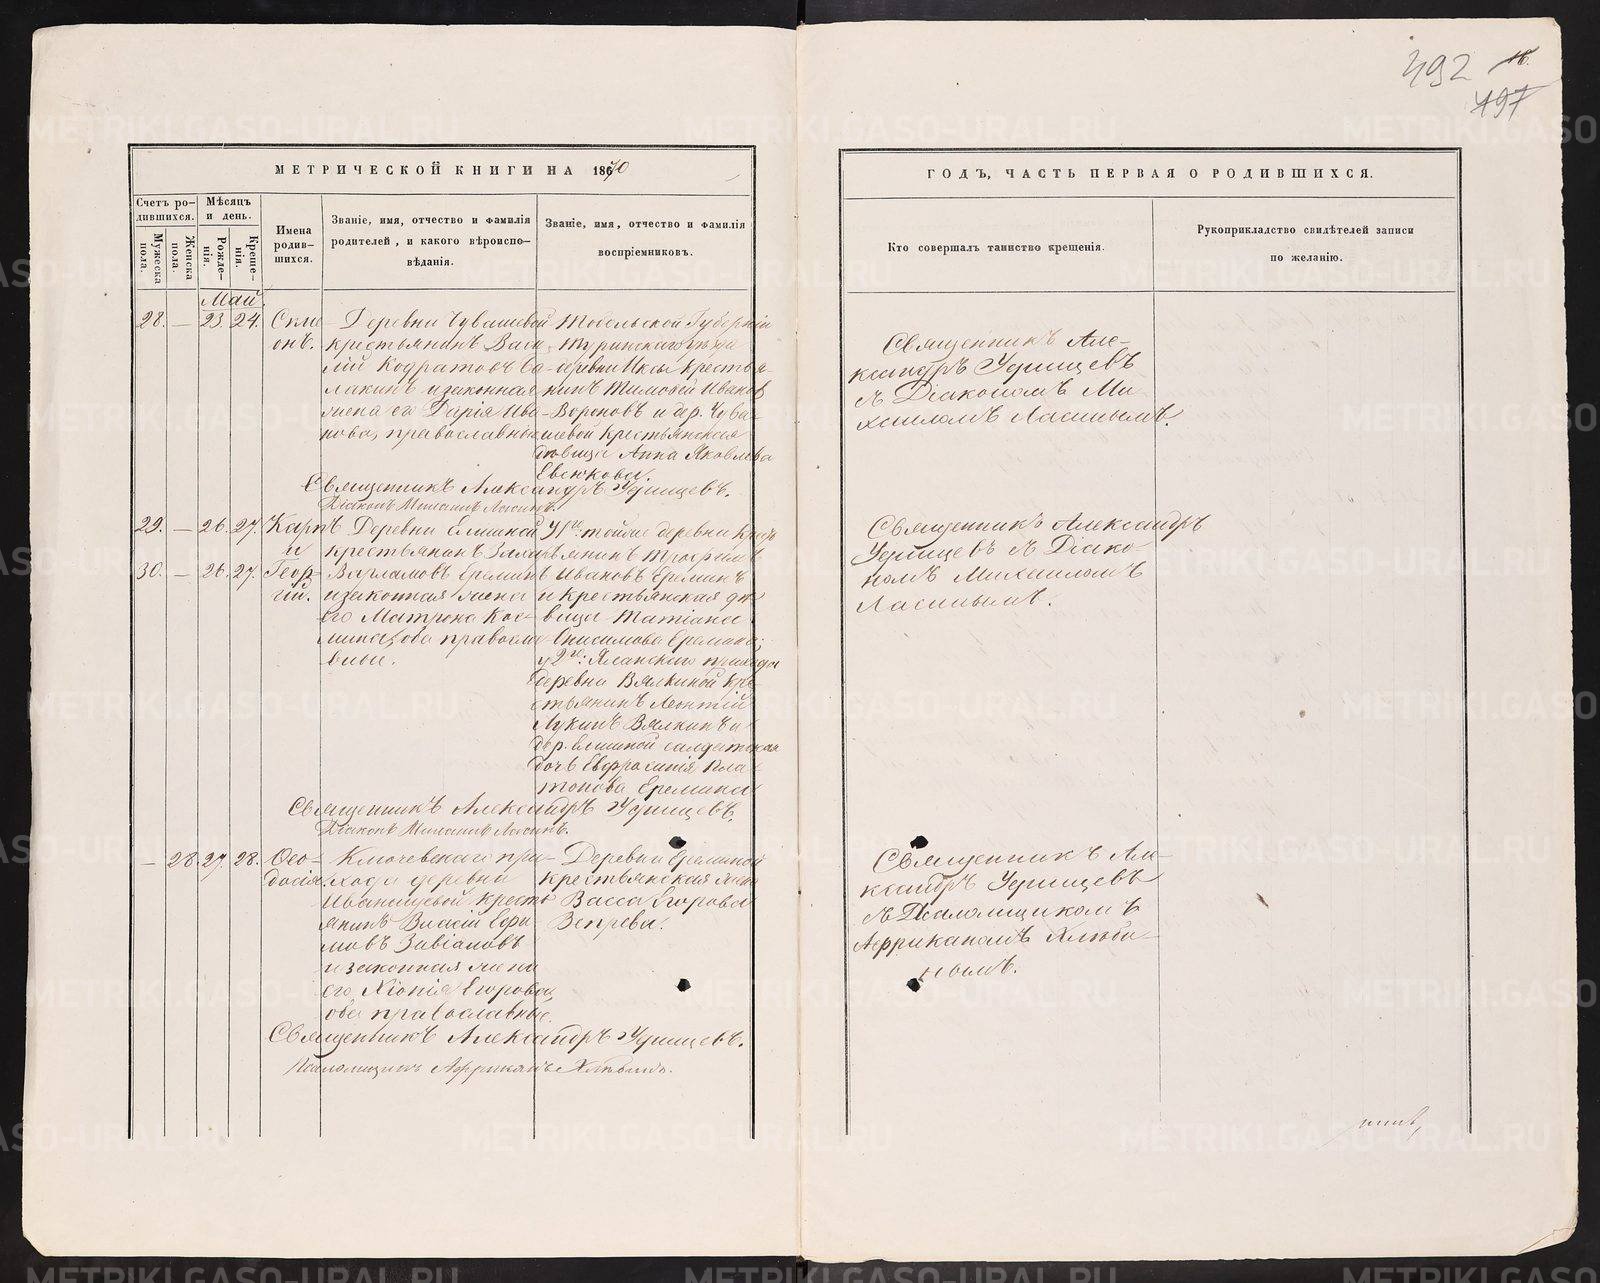 МЕТРИЧЕСКОЙ КНИГИ НА 1870
Счетъ ро-
дившихся.
Мѣсяцъ
и день.
Мужеска
пола.
Женска
пола.
Рожде-
нія.
Креще-
нія.
Имена
родив-
шихся.
Званіе, имя, отчество и фамилія
родителей, и какого вѣроиспо-
вѣданія.
Званіе, имя, отчество и фамилія
воспріемниковъ.
Май.
28. — 23. 24.
Деревни Чувашевой
крестьянинъ Васи-
лій Кодратовъ
и законная
жена его Дарія Ива-
нова, православные
Тобольской Губерніи
Туринскаго уѣзда
деревни Иксы крестья-
нинъ Тимофей Ивановъ
Вороновъ и дер. Чува-
шевой крестьянская
дѣвица Анна Яковлева
Евсюкова.
Священникъ Александръ Удинцевъ.
Діаконъ Михаилъ Ласинъ.
29. — 26. 27.
Карпъ
и
30. — 26. 27.
Геор-
гій.
Деревни Елшиной
крестьянинъ
Варламовъ Ереминъ
и законная жена
его Матрона Кос-
православ-
ные.
У 1го: тойже деревни крес-
тьянинъ Трофимъ
Ивановъ Ереминъ
и крестьянская дѣ-
вица Татіана
Онисимова Еремина;
у 2го: Яланскаго прихода
деревни Вялкиной кре-
стьянинъ Леонтій
Лукинъ Вялкинъ и
дер. Елшиной салдатская
дочь Евфросинія Пла-
тонова Еремина
Священникъ Александръ Удинцевъ.
Діаконъ Михаилъ Ласинъ.
— 28. 27. 28.
Ѳео-
досія.
Ключевскаго при-
хода деревни
Иванищевой кресть-
янинъ Власій Ефи-
мовъ Завіаловъ
и законная жена
его Хіонія Егорова,
оба православные.
Деревни Ереминой
крестьянская жена
Васса Егорова
Зепрева.
Священникъ Александръ Удинцевъ.
Псаломщикъ Африканъ Хлѣбинъ.
492
197
ГОДЪ, ЧАСТЬ ПЕРВАЯ О РОДИВШИХСЯ.
Кто совершалъ таинство крещенія.
Рукоприкладство свидѣтелей записи
по желанію.
Священникъ Але-
ксандръ Удинцевъ
съ Діакономъ Ми-
хаиломъ Ласинымъ.
Священникъ Александръ
Удинцевъ съ Діако-
номъ Михаиломъ
Ласинымъ.
Священникъ Але-
ксандръ Удинцевъ
съ Псаломщикомъ
Африканомъ Хлѣби-
нымъ.
METRIKI.GASO-URAL.RU